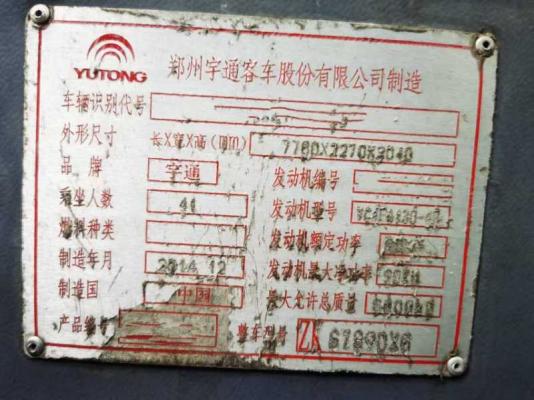 YUTONG 郑州宇通客车股份有限公司制造
车辆识别代号
外形尺寸 长X宽X高(mm) 7760X2270X3040
品牌 宇通 发动机编号
乘坐人数 41 发动机型号
燃料种类 发动机额定功率
制造年月 2014.12 发动机最大净功率
制造国 中国 最大允许总质量
产品编号 整车型号 ZK 6789DX6